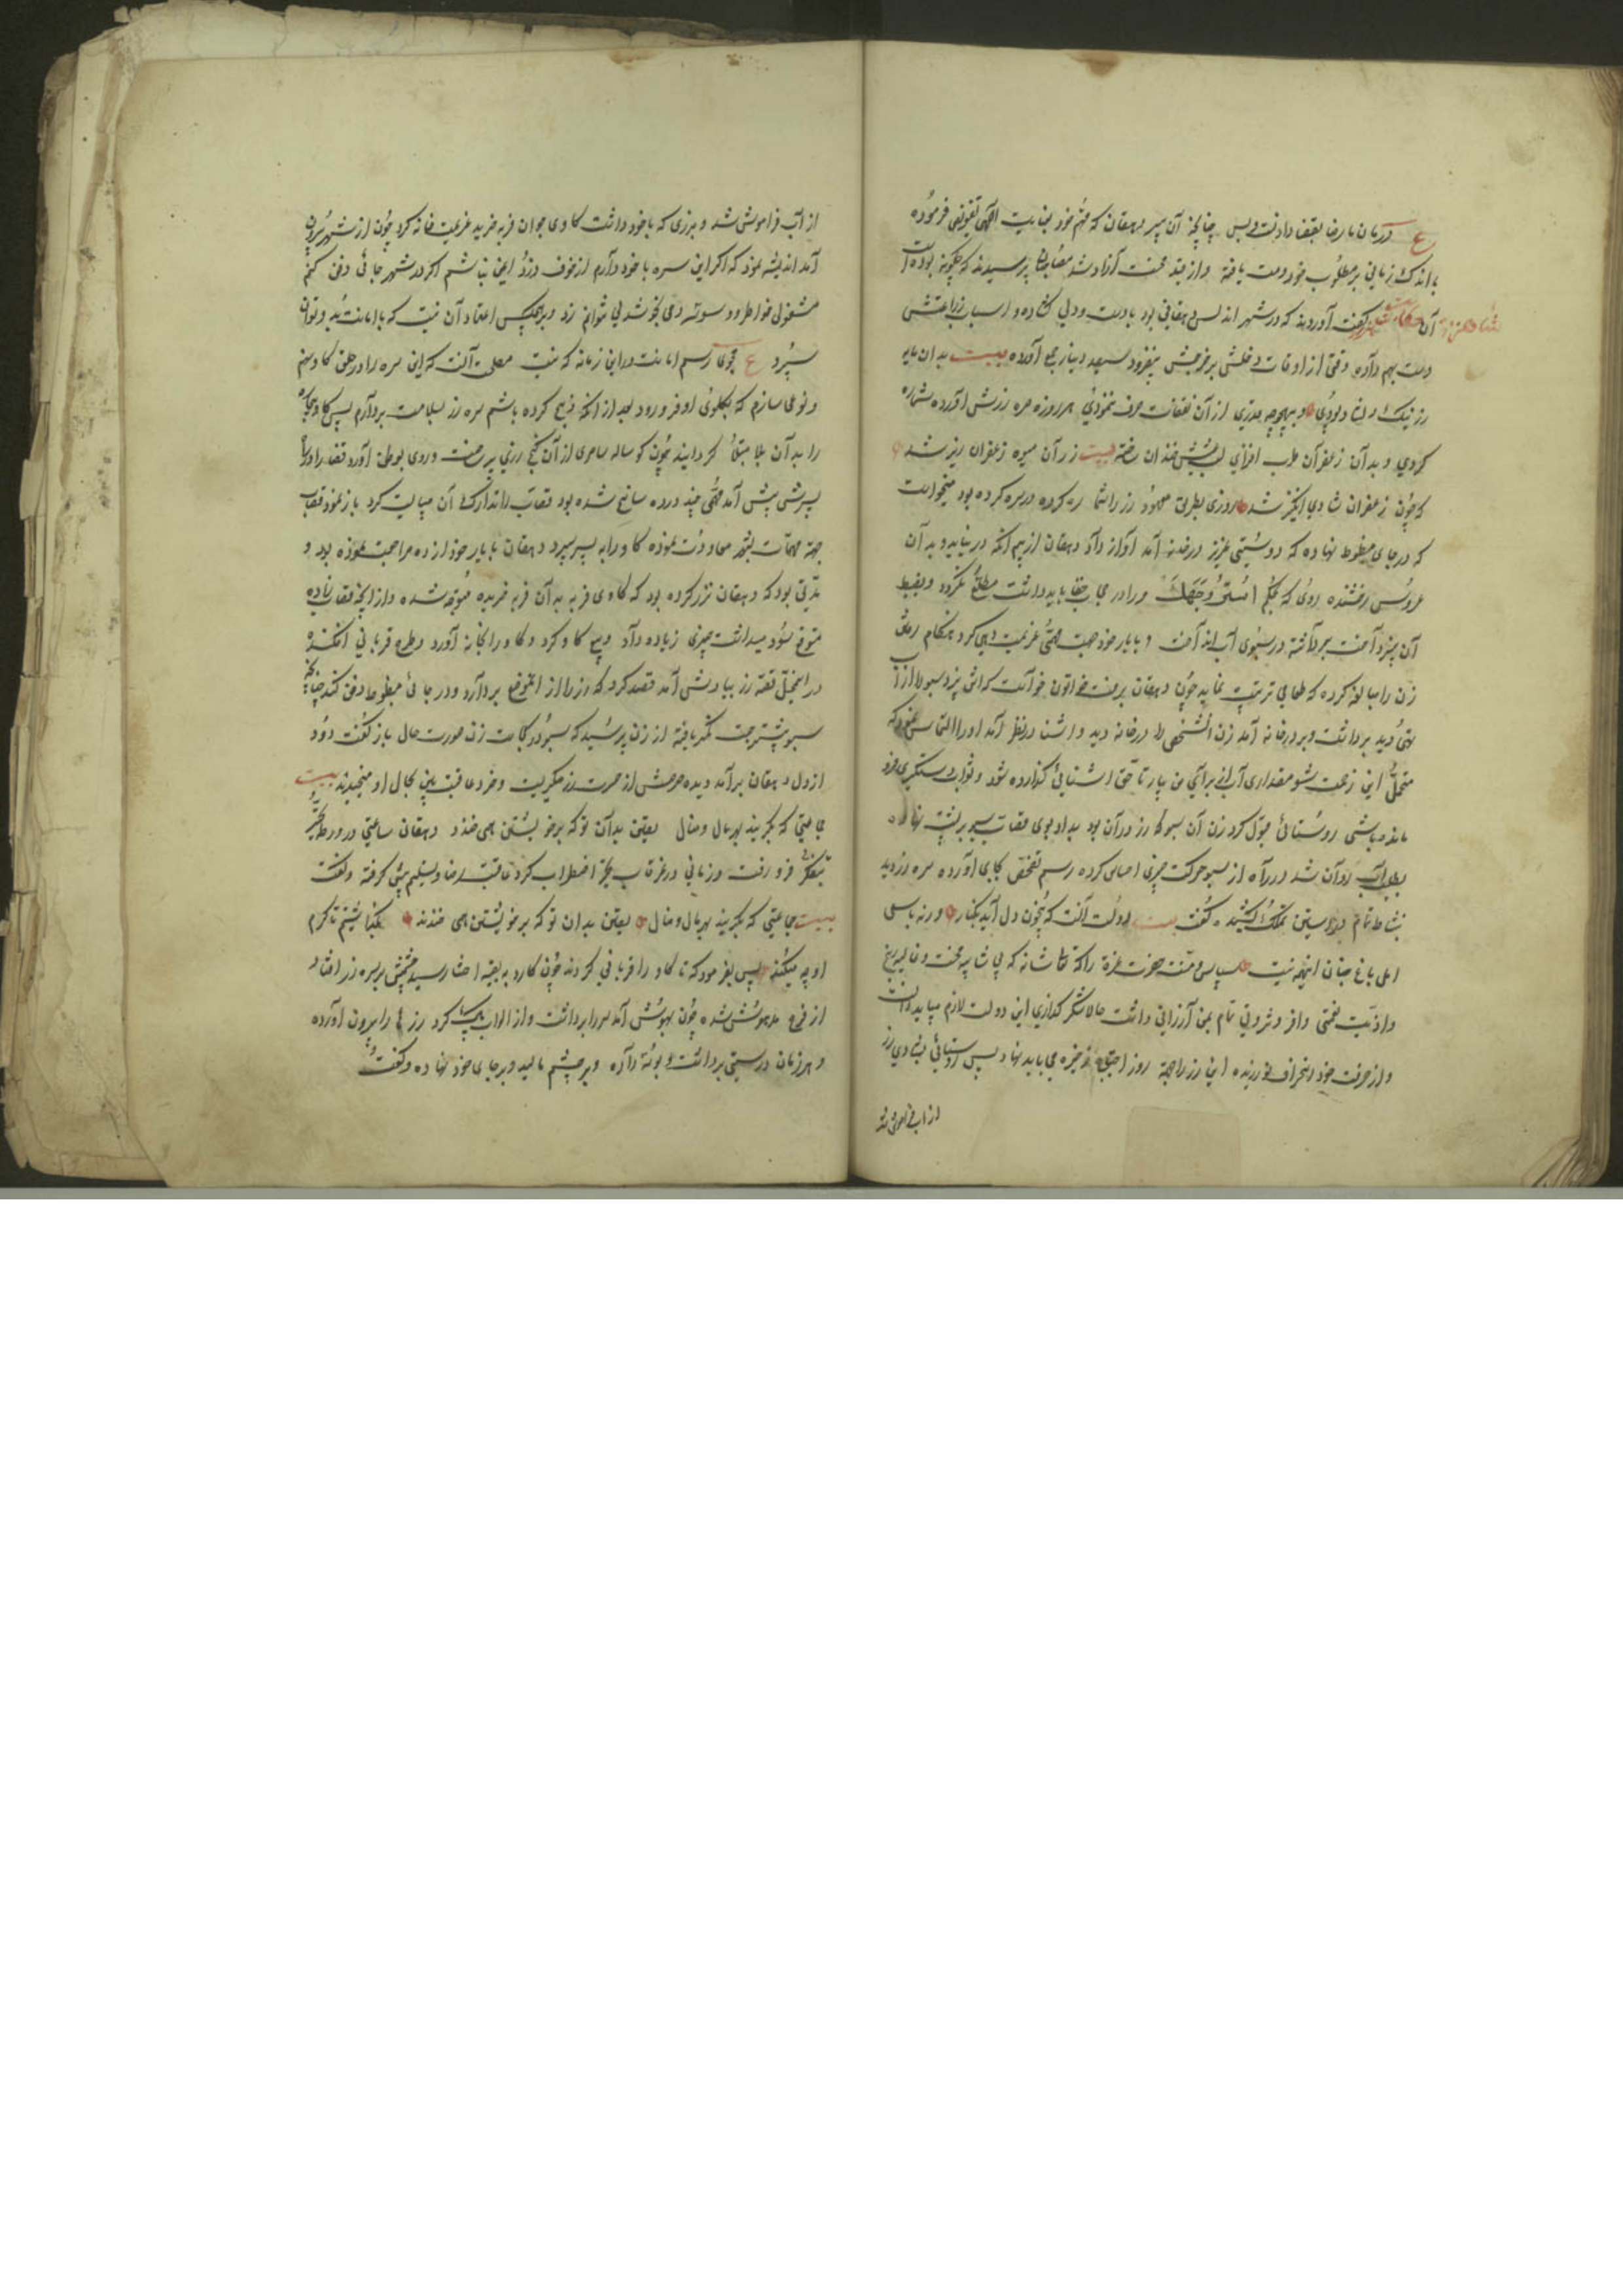 ع درمان ما رضا بقضا دادنست و بس چنانچه آن پیر دهقان که مهم خود بعنایت الهی تفویض فرموده
باندک زمانی بر مطلوب خود دست یافته و از قید محنت آزاد شد مصاحبان پرسیدند که چگونه بوده است
آن حکایت گفت آورده‌اند که در شهر اندلس دهقانی بود با دست و دلی گشاده و اسباب زراعتش
دست بهم داده وقتی از اوقات دخلش بر خرجش بیفزود سیصد دینار جمع آورده بیت بدان مایه
زر نیک دلشاد بودی و بهیچوجه چیزی از آن نفقات صرف ننمودی هر روزه صره زرش آورده شماره
کردی و بدان زعفران طرب افزای لبش خندان ساخته بیت زر آن میوه زعفران ریز شد
که چون زعفران شادی انگیز شد روزی بطریق معهود زر را شماره کرده در صره کرده بود میخواست
که در جای مضبوط نهاده که دوستی عزیز در خانه آمد آواز داد دهقان از بیم آنکه در نیاید و به آن
عروس رخشنده روی که بحکم استر وجهک ورا در حجاب خفا باید داشت مطلع نگردد
آن صره آنست برداشته در سبوی آب انداخت و با یار خود جهت مهمی عزیمت دهی کرد هنگام رفتن
زن را مبالغه کرده که طعامی ترتیب نماید چون دهقان برفت خواتون خواست که آش پزد سبو را از آب
تهی دید برداشت و بر در خانه آمد زن شخصی را در خانه دید و آشنا در نظر آمد او را التماس نمود که
متحمل این زحمت شو مقداری آب از برای من بیار تا حق آشنائی گذارده شود و ثواب دستگیری فرو
مانده باشی روستائی قبول کرد زن آن سبو که زر در آن بود بدو داد قصاب سبو بر پشت نهاده
بطلب آب روان شد در راه از سبو حرکت چیزی احساس کرده رسم تفحص بجای آورده صره زر دید
نشاط تمام در آستین تملک کشیده گفت بیت دولت آنست که بی‌خون دل آید بکنار ورنه با سعی
عمل باغ جنان اینهمه نیست سپاس و منت حضرت عزة را که بی شایبه محنت و
و اذیت نعمتی وافر و ثروتی تمام بمن ارزانی داشت حالا شکر گذاری این دولت لازم میباید دانست
و از حرفت خود انحراف نورزیده این زر را جهة روز احتیاج ذخیره می باید نهاد پس روستائی بشادی زر
از آب فراموش شد
از آب فراموش شد و برزی که با خود داشت گاوی جوان فربه خرید عزیمت خانه کرد چون از شهر بیرون
آمد اندیشه نمود که اگر این صره با خود دارم از خوف دزد ایمن نباشم اگر در شهر جائی دفن کنم
مشغولی خواطر و وسوسه دمی بخوشدلی نتوانم زد و بر هیچکس اعتماد آن نیست که با امانت بدو توان
سپرد ع مجوی رسم امانت در این زمانه که نیست مصلحت آنست که این صره را در حلق گاو نهم
و نوعی سازم که بگلوی او فرو رود بعد از آنکه ذبح کرده باشم صره زر بسلامت بردارم پس گاو بیچاره
را بدان بلا مبتلا گردانید چون گوساله سامری از آن گنج زری پر ساخت و روی بوطن آورد قضا را در راه
پسرش پیش آمد مهمی چند در ده سانح شده بود قصاب را تدارک آن میبایست کرد باز نمود قصاب
جهة مهمات بشهر معاودت نموده گاو را به پسر سپرد دهقان با یار خود از ده مراجعت نموده بود و
مدتی بود که دهقان نذر کرده بود که گاوی فربه به آن فربه خریده متوجه شده و از آنچه قصاب زاده
متوقع سود میداشت چیزی زیاده داد و بیع گاو کرد و گاو را بخانه آورد و طرح قربانی افکنده
در این محل قصه زر بیادش آمد قصد کرد که زر را از آن موضع بردارد و در جائی مضبوط دفن کند چنانچه
سبو بیشتر جست کمتر یافته از زن پرسید که سبو در کجاست زن صورت حال باز گفت دود
از دل دهقان برآمد دیده حرصش از حسرت زر میگریست و خرد عاقبت بین بحال او میخندید بیت
جماعتی که بگریند بهر مال و منال یقین بدان تو که بر خویشتن همی خندند دهقان ساعتی در ورطه تحیر
بتفکر فرو رفت و زمانی در غرقاب تحیر اضطراب کرد عاقبت رضا و تسلیم پیش گرفته و گفت
بیت جماعتی که بگریند بهر مال و منال یقین بدان تو که بر خویشتن همی خندند بگذاشتیم تا کرم
او چه میکند پس بفرمود که تا گاو را قربانی کردند چون کارد به بقیه احشا رسید چشمش بر صره زر افتاد
از فرح مدهوش شده چون بهوش آمد صره را برداشت و از الواث پاک کرد زرها را بیرون آورده
و هر زمان درستی برداشت و بوسه داده و بر چشم مالید و بر جای خود نهاده و گفت